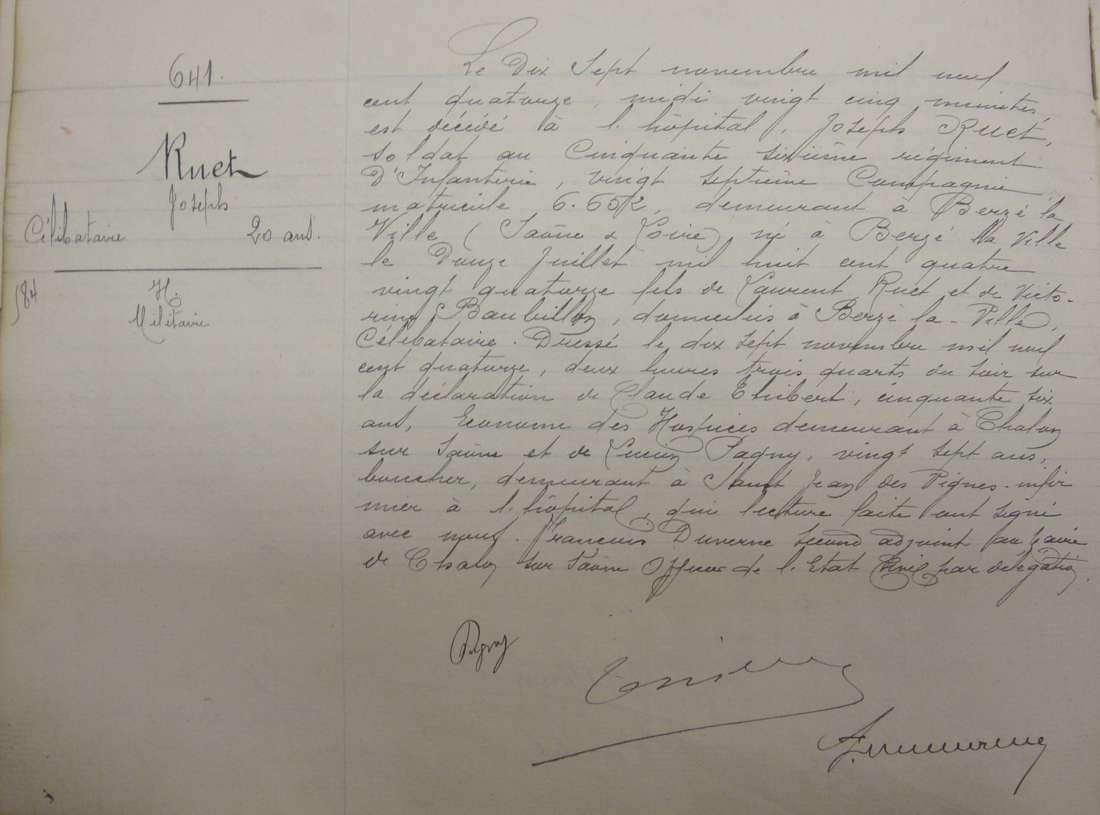 641.
Ruet
Joseph
Célibataire 20 ans.
584
H
Militaire
Le Dix Sept novembre mil neuf
cent quatorze, midi vingt cinq minutes,
est décédé à l'hôpital, Joseph Ruet,
soldat au Cinquante sixième régiment
D'Infanterie, vingt septième Compagnie
matricule 6.652, demeurant à Berzé la
Ville (Saône & Loire) né à Berzé la Ville
le Douze Juillet mil huit cent quatre
vingt quatorze fils de Laurent Ruet et de Victo-
rine, domiciliés à Berzé la-Ville,
Célibataire. Dressé le dix sept novembre mil neuf
cent quatorze, deux heures trois quarts du soir sur
la déclaration de Claude Thibert, cinquante six
ans, Econome des Hospices demeurant à Chalon
sur Saône et de Pagny, vingt sept ans,
boucher, demeurant à Saint Jean des Vignes-infir
mier à l'hôpital, qui lecture faite ont signé
avec nous. François Duverne second adjoint au Maire
de Chalon sur Saône Officier de l'Etat Civil par délégation.
Pagny